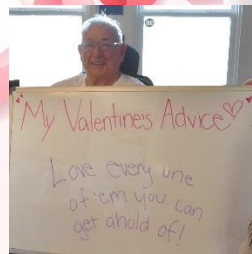 My Valentines Advice
Love every one
of 'em you can
get ahold of!